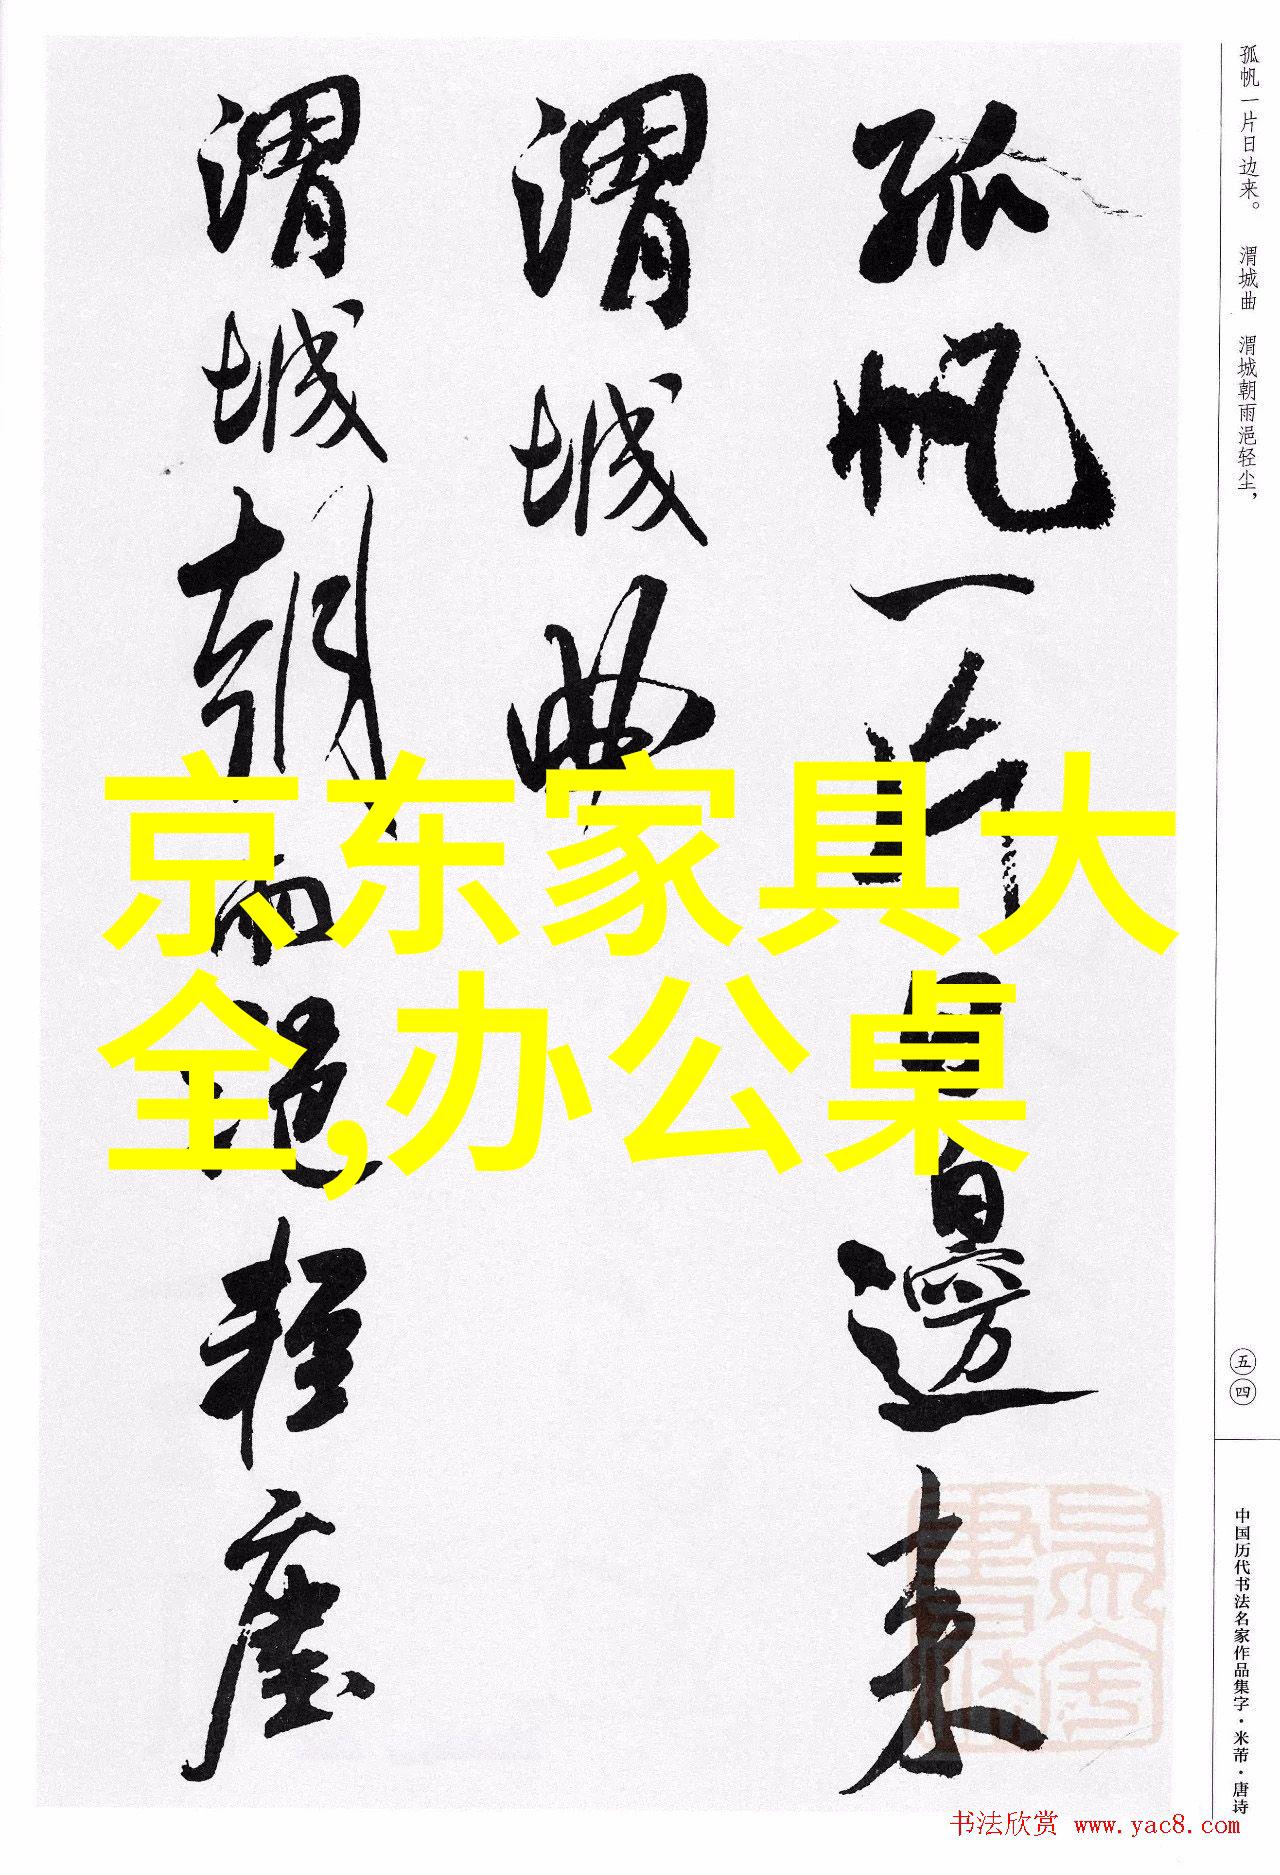 孤帆一片日边来。 渭城曲 渭城朝雨浥轻尘，
孤帆一片日邊来
渭城曲
渭城朝雨浥轻塵
京东家具大
全,办公桌
五四
中国历代书法名家作品集字·米芾·唐诗
书法欣赏 www.yac8.com